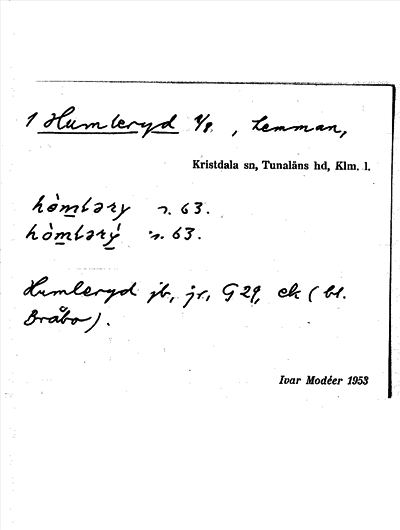 1 Humleryd 1/8, hemman,
Kristdala sn, Tunaläns hd, Klm. l.
hòmləry r. 63.
hòmlərý r. 63.
Humleryd jb, jr, G 29, ek (bl.
Bråbo).
Ivar Modéer 1953